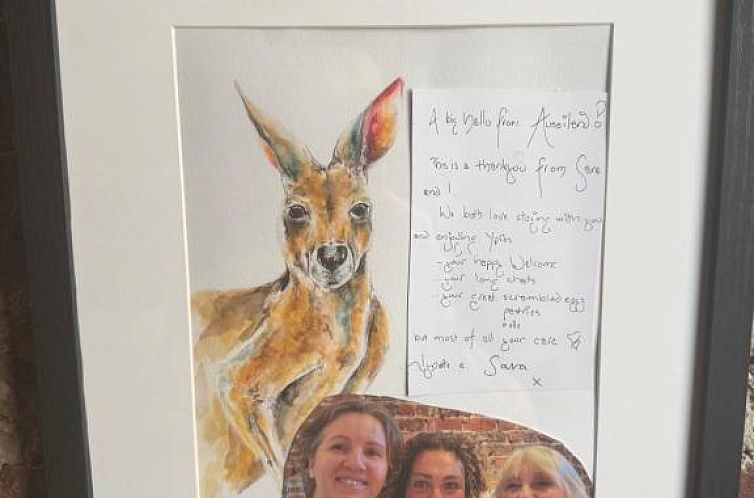 A big hello from
This is a thankyou from Sara
and I
We both love staying with you
and enjoying Ypres
- your happy Welcome
- your long chats
- your great scrambled eggs
pastries
but most of all your care
& Sara
x